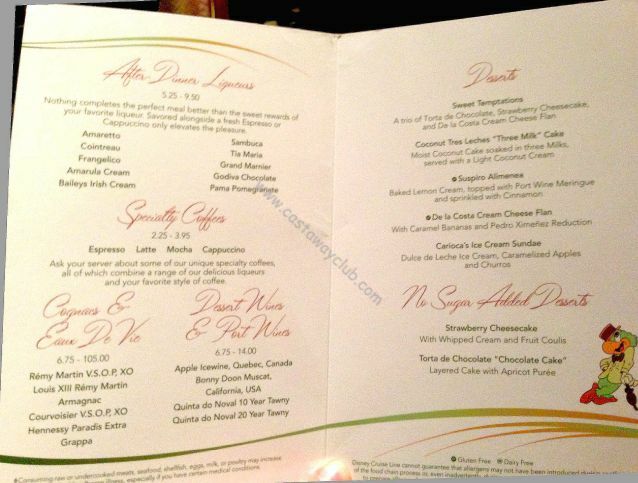 After Dinner Liqueurs
5.25 - 9.50
Nothing completes the perfect meal better than the sweet rewards of
your favorite liqueur. Savored alongside a fresh Espresso or
Cappuccino only elevates the pleasure.
Amaretto
Cointreau
Frangelico
Amarula Cream
Baileys Irish Cream
Sambuca
Tia Maria
Grand Marnier
Godiva Chocolate
Pama Pomegranate
Specialty Coffees
2.25 - 3.95
Espresso Latte Mocha Cappuccino
Ask your server about some of our unique specialty coffees,
all of which combine a range of our delicious liqueurs
and your favorite style of coffee.
Cognacs &
Eaux De Vie
6.75 - 105.00
Rémy Martin V.S.O.P, XO
Louis XIII Rémy Martin
Armagnac
Courvoisier V.S.O.P, XO
Hennessy Paradis Extra
Grappa
Dessert Wines
& Port Wines
6.75 - 14.00
Apple Icewine, Quebec, Canada
Bonny Doon Muscat,
California, USA
Quinta do Noval 10 Year Tawny
Quinta do Noval 20 Year Tawny
Consuming raw or undercooked meats, seafood, shellfish, eggs, milk, or poultry may increase
illness, especially if you have certain medical conditions.
Desserts
Sweet Temptations
A trio of Torta de Chocolate, Strawberry Cheesecake,
and De la Costa Cream Cheese Flan
Coconut Tres Leches "Three Milk" Cake
Moist Coconut Cake soaked in three Milks,
served with a Light Coconut Cream
Suspiro Alimenea
Baked Lemon Cream, topped with Port Wine Meringue
and sprinkled with Cinnamon
De la Costa Cream Cheese Flan
With Caramel Bananas and Pedro Ximeñez Reduction
Carioca's Ice Cream Sundae
Dulce de Leche Ice Cream, Caramelized Apples
and Churros
No Sugar Added Desserts
Strawberry Cheesecake
With Whipped Cream and Fruit Coulis
Torta de Chocolate "Chocolate Cake"
Layered Cake with Apricot Purée
Gluten Free Dairy Free
Disney Cruise Line cannot guarantee that allergens may not have been introduced during
of the food chain process or, even inadvertently, during
www.castawayclub.com